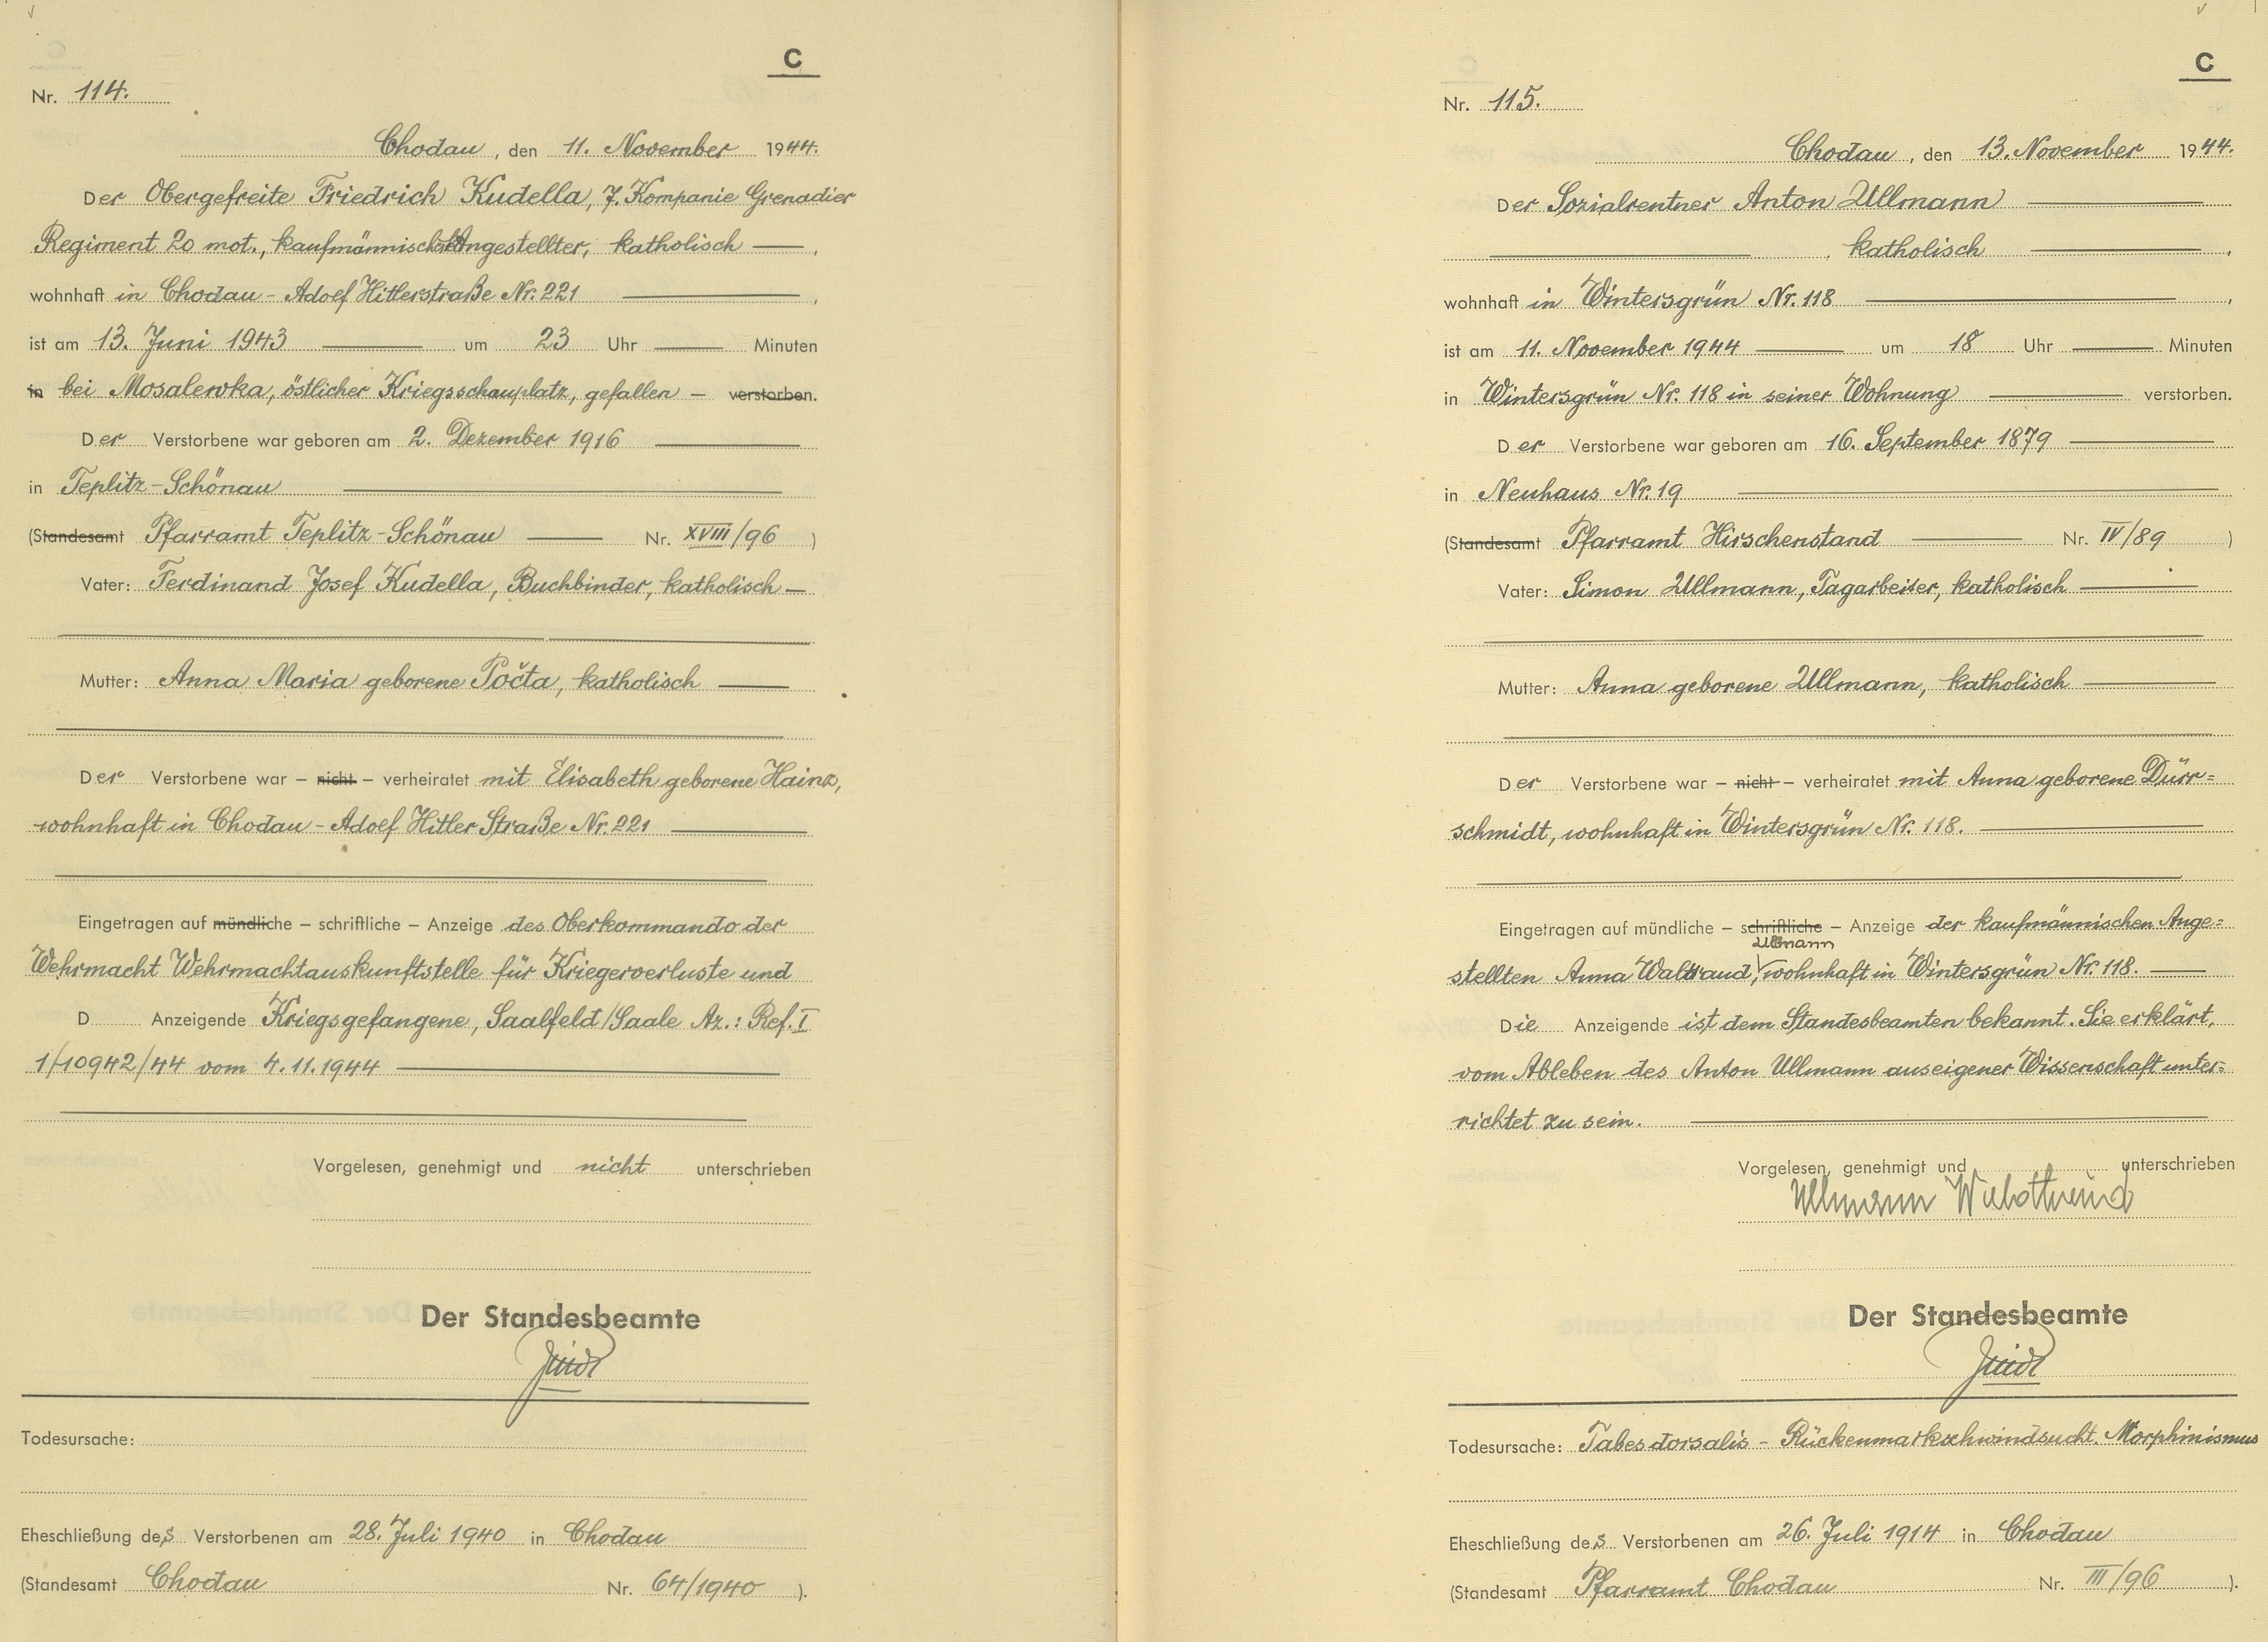 C
Nr. 114.
Chodau, den 11. November 1944.
Der Obergefreite Friedrich Kudella, 7. Kompanie Grenadier
Regiment 20 mot., kaufmännischer Angestellter, katholisch
wohnhaft in Chodau - Adolf Hitlerstraße Nr. 221
ist am 13. Juni 1943 um 23 Uhr Minuten
in bei Mosalewka, östlicher Kriegsschauplatz, gefallen - verstorben.
Der Verstorbene war geboren am 2. Dezember 1916
in Teplitz-Schönau
(Standesamt Pfarramt Teplitz-Schönau Nr. XVIII/96 )
Vater: Ferdinand Josef Kudella, Buchbinder, katholisch
Mutter: Anna Maria geborene Počta, katholisch
Der Verstorbene war – nicht – verheiratet mit Elisabeth geborene Hainz,
wohnhaft in Chodau - Adolf Hitler Straße Nr. 221
Eingetragen auf mündliche – schriftliche – Anzeige des Oberkommando der
Wehrmacht Wehrmachtauskunftstelle für Kriegerverluste und
D Anzeigende Kriegsgefangene, Saalfeld/Saale Az.: Ref. I
1/10942/44 vom 4.11.1944
Vorgelesen, genehmigt und nicht unterschrieben
Der Standesbeamte
Todesursache:
Eheschließung des Verstorbenen am 28. Juli 1940 in Chodau
(Standesamt Chodau Nr. 64/1940 ).
C
Nr. 115.
Chodau, den 13. November 1944.
Der Sozialrentner Anton Ullmann
, katholisch
wohnhaft in Wintersgrün Nr. 118
ist am 11. November 1944 um 18 Uhr Minuten
in Wintersgrün Nr. 118 in seiner Wohnung verstorben.
Der Verstorbene war geboren am 16. September 1879
in Neuhaus Nr. 19
(Standesamt Pfarramt Hirschenstand Nr. IV/89 )
Vater: Simon Ullmann, Tagarbeiter, katholisch
Mutter: Anna geborene Ullmann, katholisch
Der Verstorbene war – nicht – verheiratet mit Anna geborene Dürr=
schmidt, wohnhaft in Wintersgrün Nr. 118.
Eingetragen auf mündliche – schriftliche – Anzeige der kaufmännischen Ange=
Ullmann
stellten Anna Waltraud, wohnhaft in Wintersgrün Nr. 118.
Die Anzeigende ist dem Standesbeamten bekannt. Sie erklärt,
vom Ableben des Anton Ullmann aus eigener Wissenschaft unter=
richtet zu sein.
Vorgelesen, genehmigt und unterschrieben
Ullmann Waltraud
Der Standesbeamte
Todesursache: Tabes dorsalis - Rückenmarkschwindsucht. Morphinismus
Eheschließung des Verstorbenen am 26. Juli 1914 in Chodau
(Standesamt Pfarramt Chodau Nr. III/96 ).